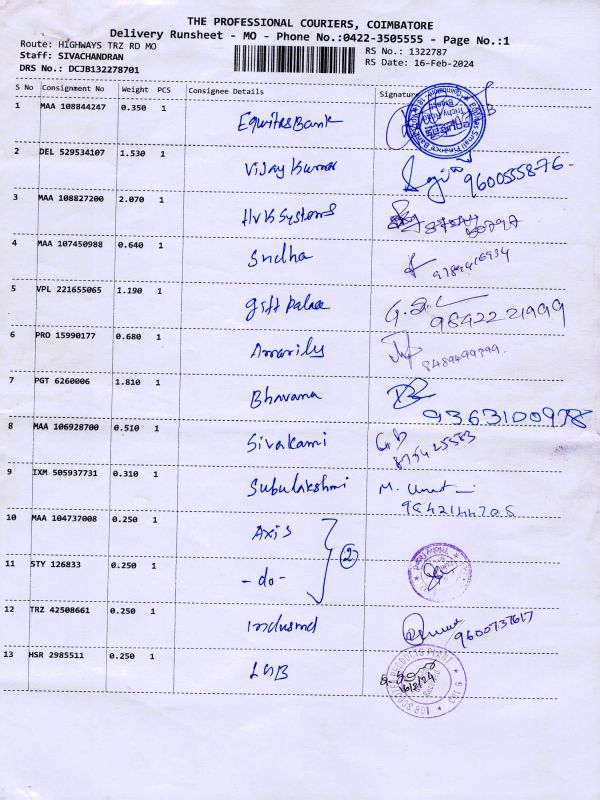 THE PROFESSIONAL COURIERS, COIMBATORE
Delivery Runsheet - MO - Phone No.:0422-3505555 - Page No.:1
Route: HIGHWAYS TRZ RD MO
RS No.: 1322787
Staff: SIVACHANDRAN
RS Date: 16-Feb-2024
DRS No.: DCJB132278701
S No Consignment No Weight PCS Consignee Details Signature
1 MAA 108844247 0.350 1 Equitas Bank
2 DEL 529534107 1.530 1 Vijay Kumar 9600555876
3 MAA 108827200 2.070 1 HVK Systems
4 MAA 107450988 0.640 1 Sudha
5 VPL 221655065 1.190 1 Gift Palace 9842221999
6 PRO 15990177 0.680 1 Amarily 8489499899
7 PGT 6260006 1.810 1 Bhavana 9363100978
8 MAA 106928700 0.510 1 Sivakami
9 IXM 505937731 0.310 1 Subulakshmi M.
10 MAA 104737008 0.250 1 Axis
2
11 STY 126833 0.250 1 -do-
12 TRZ 42508661 0.250 1 Indusind 9600737617
13 HSR 2985511 0.250 1 LGB 16/2/24